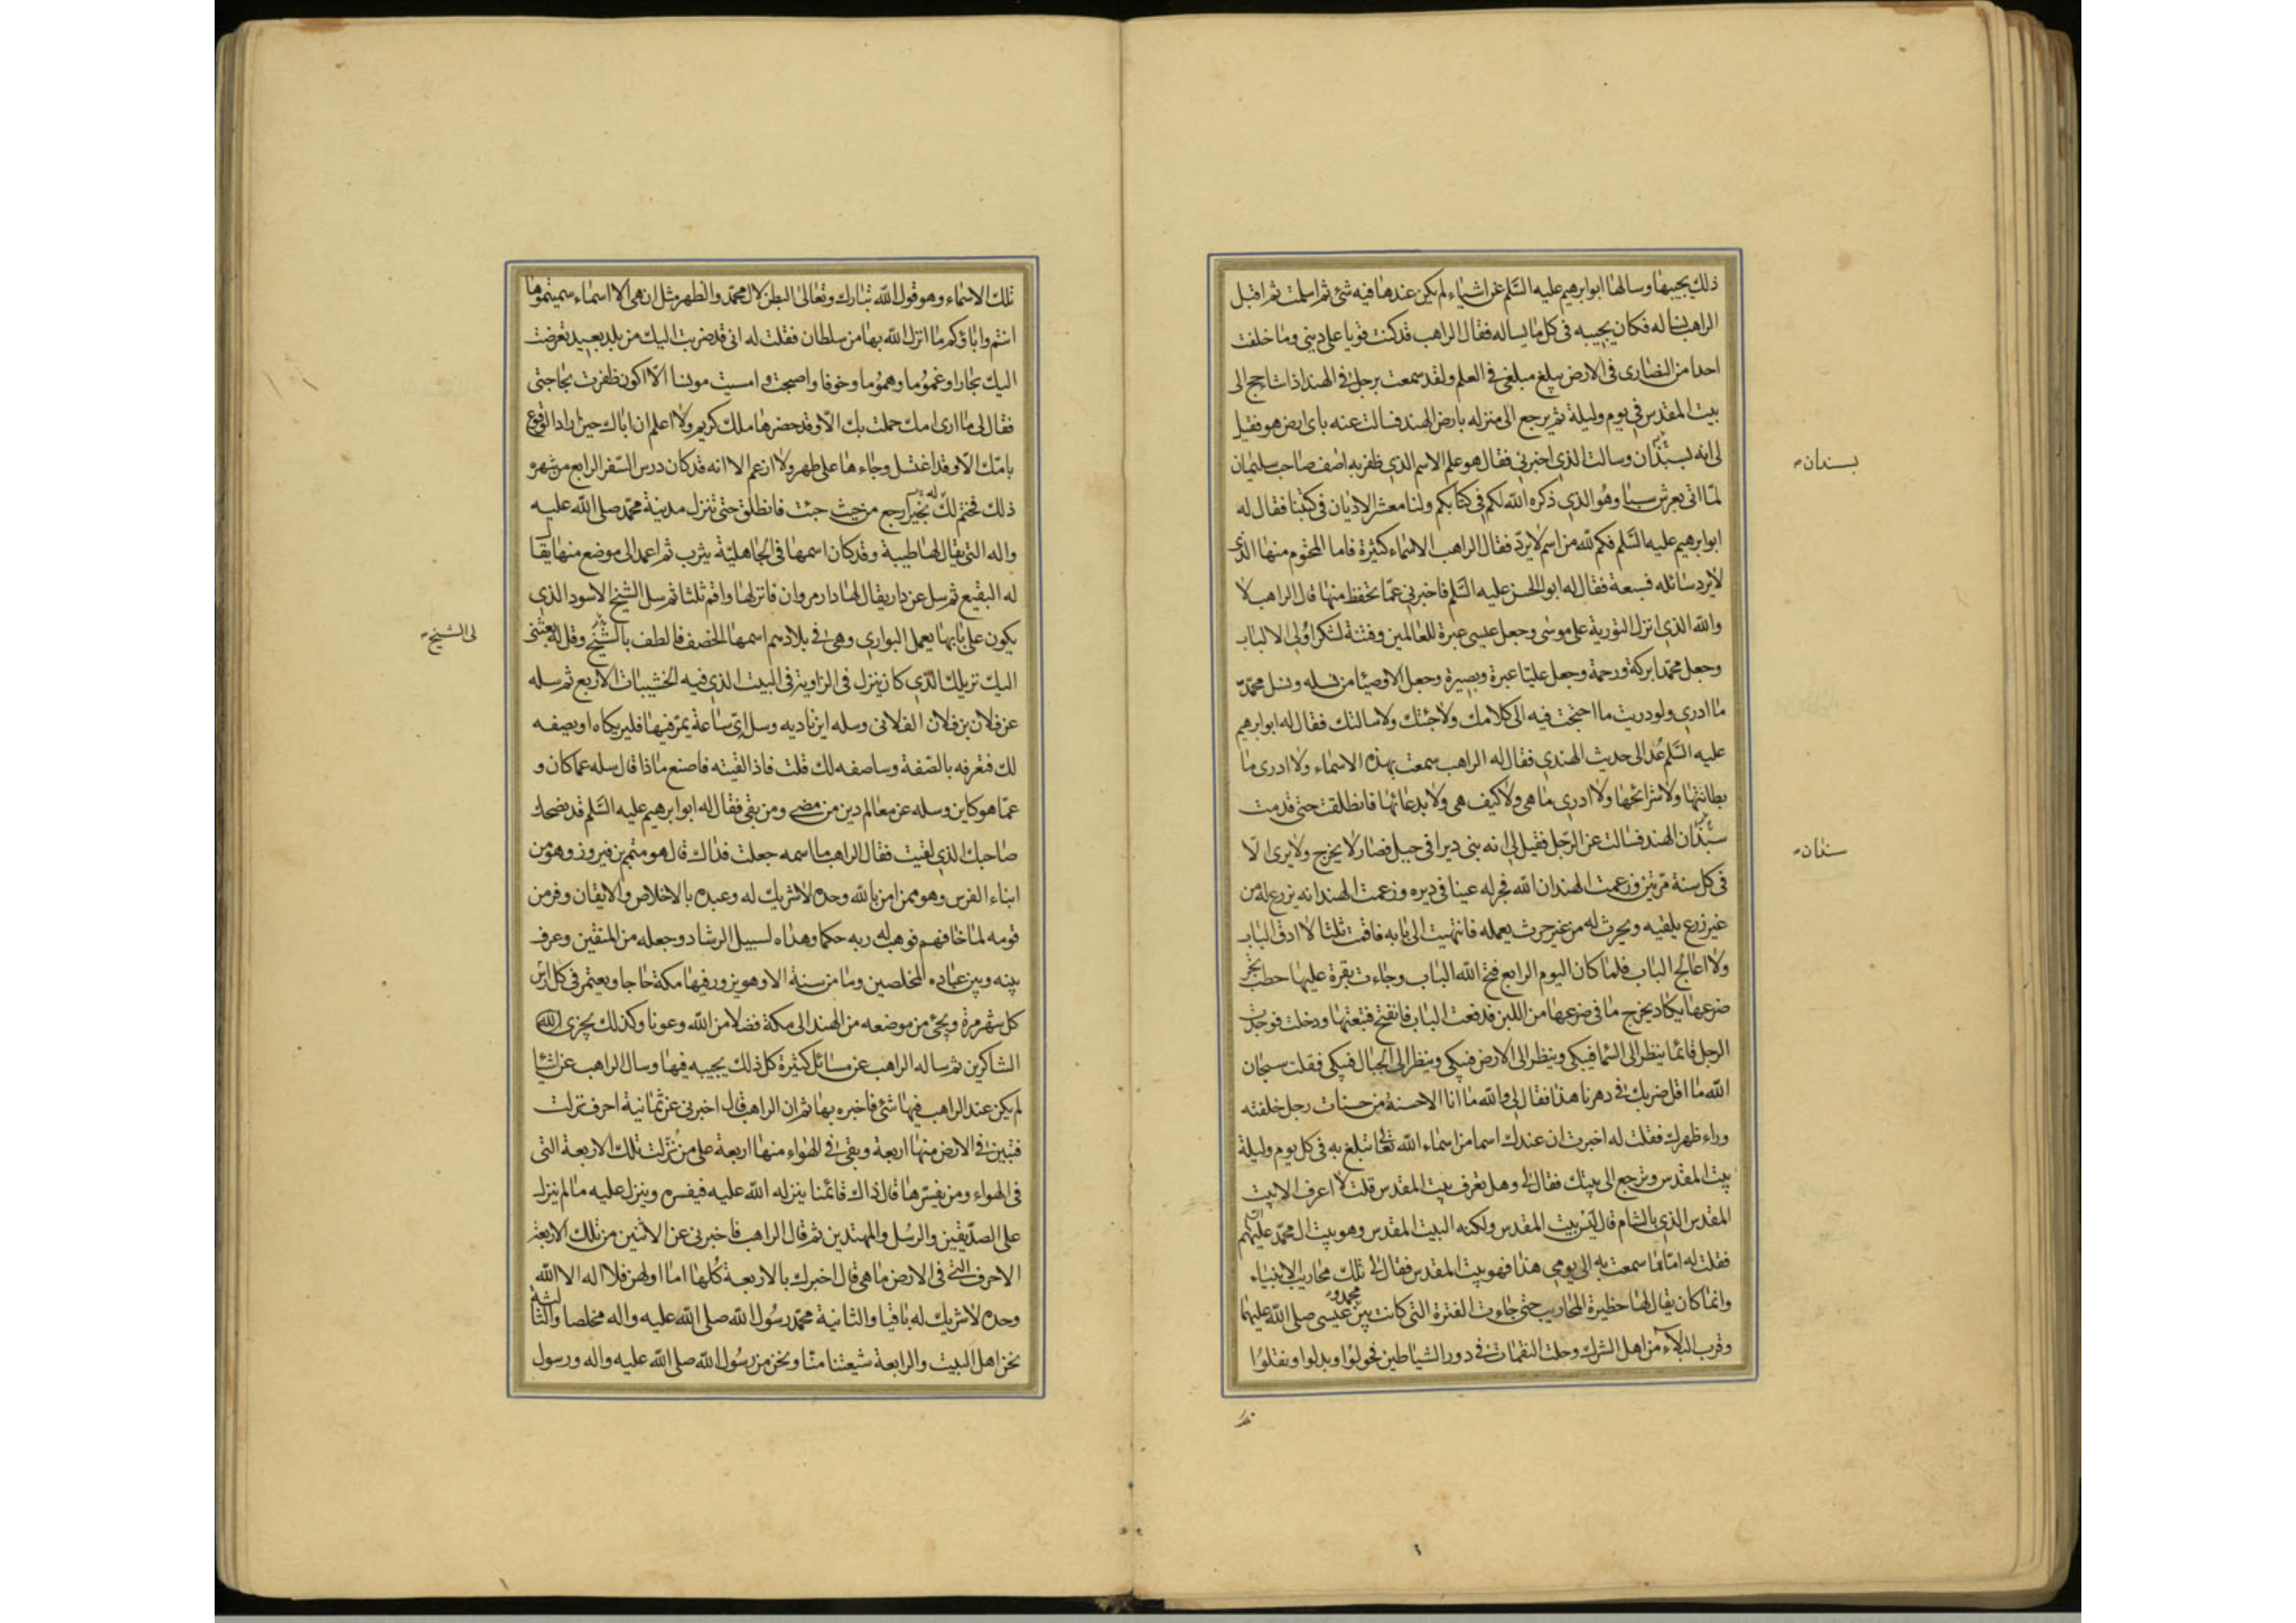 ذلك يجيبها وسالها ابوابرهيم عليه السَّلم عن اشياء لم يكن عندها فيه شئ ثم اسلمت ثم اقبل
الراهب يساله فكان يجيبه فى كل ما يساله فقال الراهب قد كنت قويا على دينى وما خلفت
احدا من النصارى فى الارض يبلغ مبلغى فى العلم ولقد سمعت برجل فى الهند اذا شا حج الى
بيت المقدس فى يوم وليلة ثم يرجع الى منزله بارض الهند فسالت عنه باى ارض هو فقيل
لى انه بسبذان وسالت الذى اخبرنى فقال هو علم الاسم الذى ظفر به اصف صاحب سليمان
بسندان
لمّا اتى بعرش سبا وهو الذى ذكره الله لكم فى كتابكم ولنا معشر الاديان فى كتبنا فقال له
ابوابرهيم عليه السَّلم فكم لله من اسم لا يردّ فقال الراهب الاسماء كثيرة فاما المحتوم منها الذى
لا يرد سائله فسبعة فقال له ابو الحسن عليه السَّلم فاخبرنى عمّا تحفظ منها قال الراهب لا
والله الذى انزل التورية على موسى وجعل عيسى عبرة للعالمين وفتنة لشكر اولى الالباب
وجعل محمّدا بركة ورحمة وجعل عليّا عبرة وبصيرة وجعل الاوصيا من نسله ونسل محمّد
ما ادرى ولو دريت ما احتجت فيه الى كلامك ولا جئتك ولا سالتك فقال له ابوابرهيم
عليه السَّلم عُد الى حديث الهندى فقال له الراهب سمعت بهذه الاسماء ولا ادرى ما
بطانتها ولا شرائحها ولا ادرى ما هى ولا كيف هى ولا بدعائها فانطلقت حتى قدمت
سبذان الهند فسالت عن الرّجل فقيل لى انه بنى ديرا فى جبل فصار لا يخرج ولا يرى الّا
سندان
فى كل سنة مرّتين وزعمت الهند ان الله فجر له عينا فى ديره وزعمت الهند انه يزرع له من
غير زرع يلقيه ويحرث له من غير حرث يعمله فانتهيت الى بابه فاقمت ثلثا لا ادق الباب
ولا اعالج الباب فلما كان اليوم الرابع فتح الله الباب وجاءت بقرة عليها حطب تجر
ضرعها يكاد يخرج ما فى ضرعها من اللبن فدفعت الباب فانفتح فتبعتها ودخلت فوجدت
الرجل قائما ينظر الى السما فيبكى وينظر الى الارض فيبكى وينظر الى الجبال فيبكى فقلت سبحان
الله ما اقل ضربك فى دهرنا هذا فقال لى والله ما انا الا حسنة من حسنات رجل خلفته
وراء ظهرك فقلت له اخبرت ان عندك اسما من اسماء الله تعا تبلغ به فى كل يوم وليلة
بيت المقدس وترجع الى بيتك فقال لى وهل تعرف بيت المقدس قلت لا اعرف الا بيت
المقدس الذى بالشام قال ليس بيت المقدس ولكنه البيت المقدس وهو بيت ال محمّد عليهم
فقلت له امّا ما سمعت به الى يومى هذا فهو بيت المقدس فقال لى تلك محاريب الانبياء
وانما كان يقال لها حظيرة المحاريب حتى جاءت الفترة التى كانت بين محمد و عيسى صلى الله عليهما
وقرب البلاء من اهل الشرك وحلت النقمات فى دور الشياطين فحولوا وبدلوا ونقلوا
تلك الاسماء وهو قول الله تبارك وتعالى البطن لال محمّد والظهر مثل ان هى الا اسماء سميتموها
انتم واباؤكم ما انزل الله بها من سلطان فقلت له انى قد ضربت اليك من بلد بعيد تعرضت
اليك بحارا وغموُما وهموُما وخوفا واصبحت و امسيت مويسا الّا اكون ظفرت بحاجتى
فقال لى ما ارى امك حملت بك الّا وقد حضرها ملك كريم ولا اعلم ان اباك حين اراد الوقوع
بامّك الّا وقد اغتسل وجاءها على طهر ولا ازعم الا انه قد كان درس السّفر الرابع من شهره
ذلك فختم له بخير ارجع من حيث جئت فانطلق حتى تنزل مدينة محمّد صلى الله عليه
واله التى يقال لها طيبة وقد كان اسمها فى الجاهليّة يثرب ثم اعمد الى موضع منها يقال
له البقيع ثم سل عن دار يقال لها دار مروان فانزلها واقم ثلثا ثم سل الشيخ الاسود الذى
يكون على بابها يعمل البوارى وهى فى بلادهم اسمها الخصف فالطف بالشيخ وقل له بعثنى
لى الشيخ
اليك نزيلك الذى كان ينزل فى الزاوية فى البيت الذى فيه الخشيبات الاربع ثم سله
عن فلان بن فلان الفلانى وسله اين ناديه وسل اىّ ساعة يمرّ فيها فليريكاه او يصفه
لك فتعرفه بالصّفة وساصفه لك قلت فاذا لقيته فاصنع ماذا قال سله عما كان و
عمّا هو كاين وسله عن معالم دين من مضى ومن بقى فقال له ابوابرهيم عليه السَّلم قد نصحك
صاحبك الذى لقيت فقال الراهب ما اسمه جعلت فداك قال هو متمم بن فيروز وهو من
ابناء الفرس وهو ممن امن بالله وحده لا شريك له وعبده بالاخلاص والايقان وفر من
قومه لما خافهم فوهب له ربه حكما وهداه لسبيل الرشاد وجعله من المتقين وعرف
بينه وبين عباده المخلصين وما من سنة الا وهو يزور فيها مكة حاجا ويعتمر فى كل راس
كل شهر مرة ويجئ من موضعه من الهند الى مكة فضلا من الله وعونا وكذلك يجزى الله
الشاكرين ثم ساله الراهب عن مسائل كثيرة كل ذلك يجيبه فيها وسال الراهب عن اشيا
لم يكن عند الراهب فيها شئ فاخبره بها ثم ان الراهب قال اخبرنى عن ثمانية احرف نزلت
فتبين فى الارض منها اربعة وبقى فى الهواء منها اربعة على من نزلت تلك الاربعة التى
فى الهواء ومن يفسّرها قال ذاك قائمنا ينزله الله عليه فيفسره وينزل عليه ما لم ينزل
على الصدّيقين والرسُل والمهتدين ثم قال الراهب فاخبرنى عن الاثنين من تلك الاربعة
الاحرف التى فى الارض ما هى قال اخبرك بالاربعة كُلها امّا اولهن فلا اله الا الله
وحده لا شريك له باقيا والثانية محمّد رسُول الله صلى الله عليه واله مخلصا والثالثة
نحن اهل البيت والرابعة شيعتنا منّا ونحن من رسُول الله صلى الله عليه واله ورسول